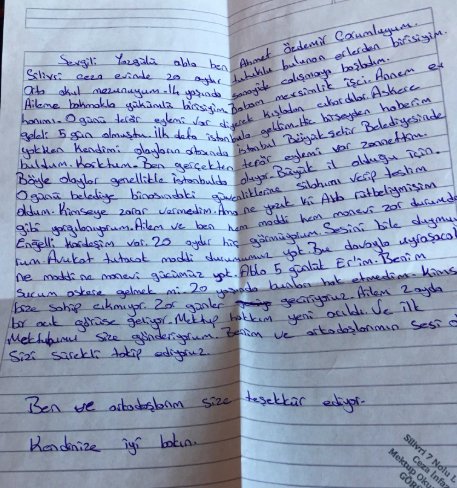 Sevgili Yazgülü abla ben Ahmet Özdemir Çorumluyum.
Silivri ceza evinde 20 aydır tutuklu bulunan erlerden birisiyim.
Orta okul mezunuyum. ilk yaşında sanayide çalışmaya başladım.
Aileme bakmakla yükümlü birisiyim. Babam mevsimlik işçi. Annem ev
hanımı. O günü terör eylemi var diyerek kışladan çıkardılar. Askere
geleli 5 gün olmuştu. ilk defa istanbula geldim. Hiç birşeyden haberim
yokken kendimi olayların ortasında İstanbul Büyük Şehir Belediyesinde
buldum. Korktum. Ben gerçekten terör eylemi var zannettim.
Böyle olaylar genellikle istanbulda oluyor. Büyük il olduğu için.
O günü belediye binasındaki güvenliklerine silahımı verip teslim
oldum. Kimseye zarar vermedim. Ama ne yazık ki Abla rütbeliymişim
gibi yargılanıyorum. Ailem ve ben hem maddi hem manevi zor durumda
Engelli kardeşim var. 20 aydır hiç görmüyorum. Sesini bile duymuyo
rum Avukat tutacak maddi durumumuz yok. Bu davayla uğraşacak
ne maddi ne manevi gücümüz yok. Abla 5 günlük Erdim. Benim
suçum askere gelmek mi. 20 yaşında bunları hak etmedim. Kimse
bize sahip çıkmıyor. Zor günler geçiriyoruz. Ailem 2 ayda
bir açık görüşe geliyor. Mektup hakkım yeni açıldı. Ve ilk
Mektubumu size gönderiyorum. Benim ve arkadaşlarımın sesi o
Sizi sürekli takip ediyoruz.
Ben ve arkadaşlarım size teşekkür ediyor.
Kendinize iyi bakın.
Silivri 7 Nolu
Ceza İnfaz
Mektup Oku
GÖR